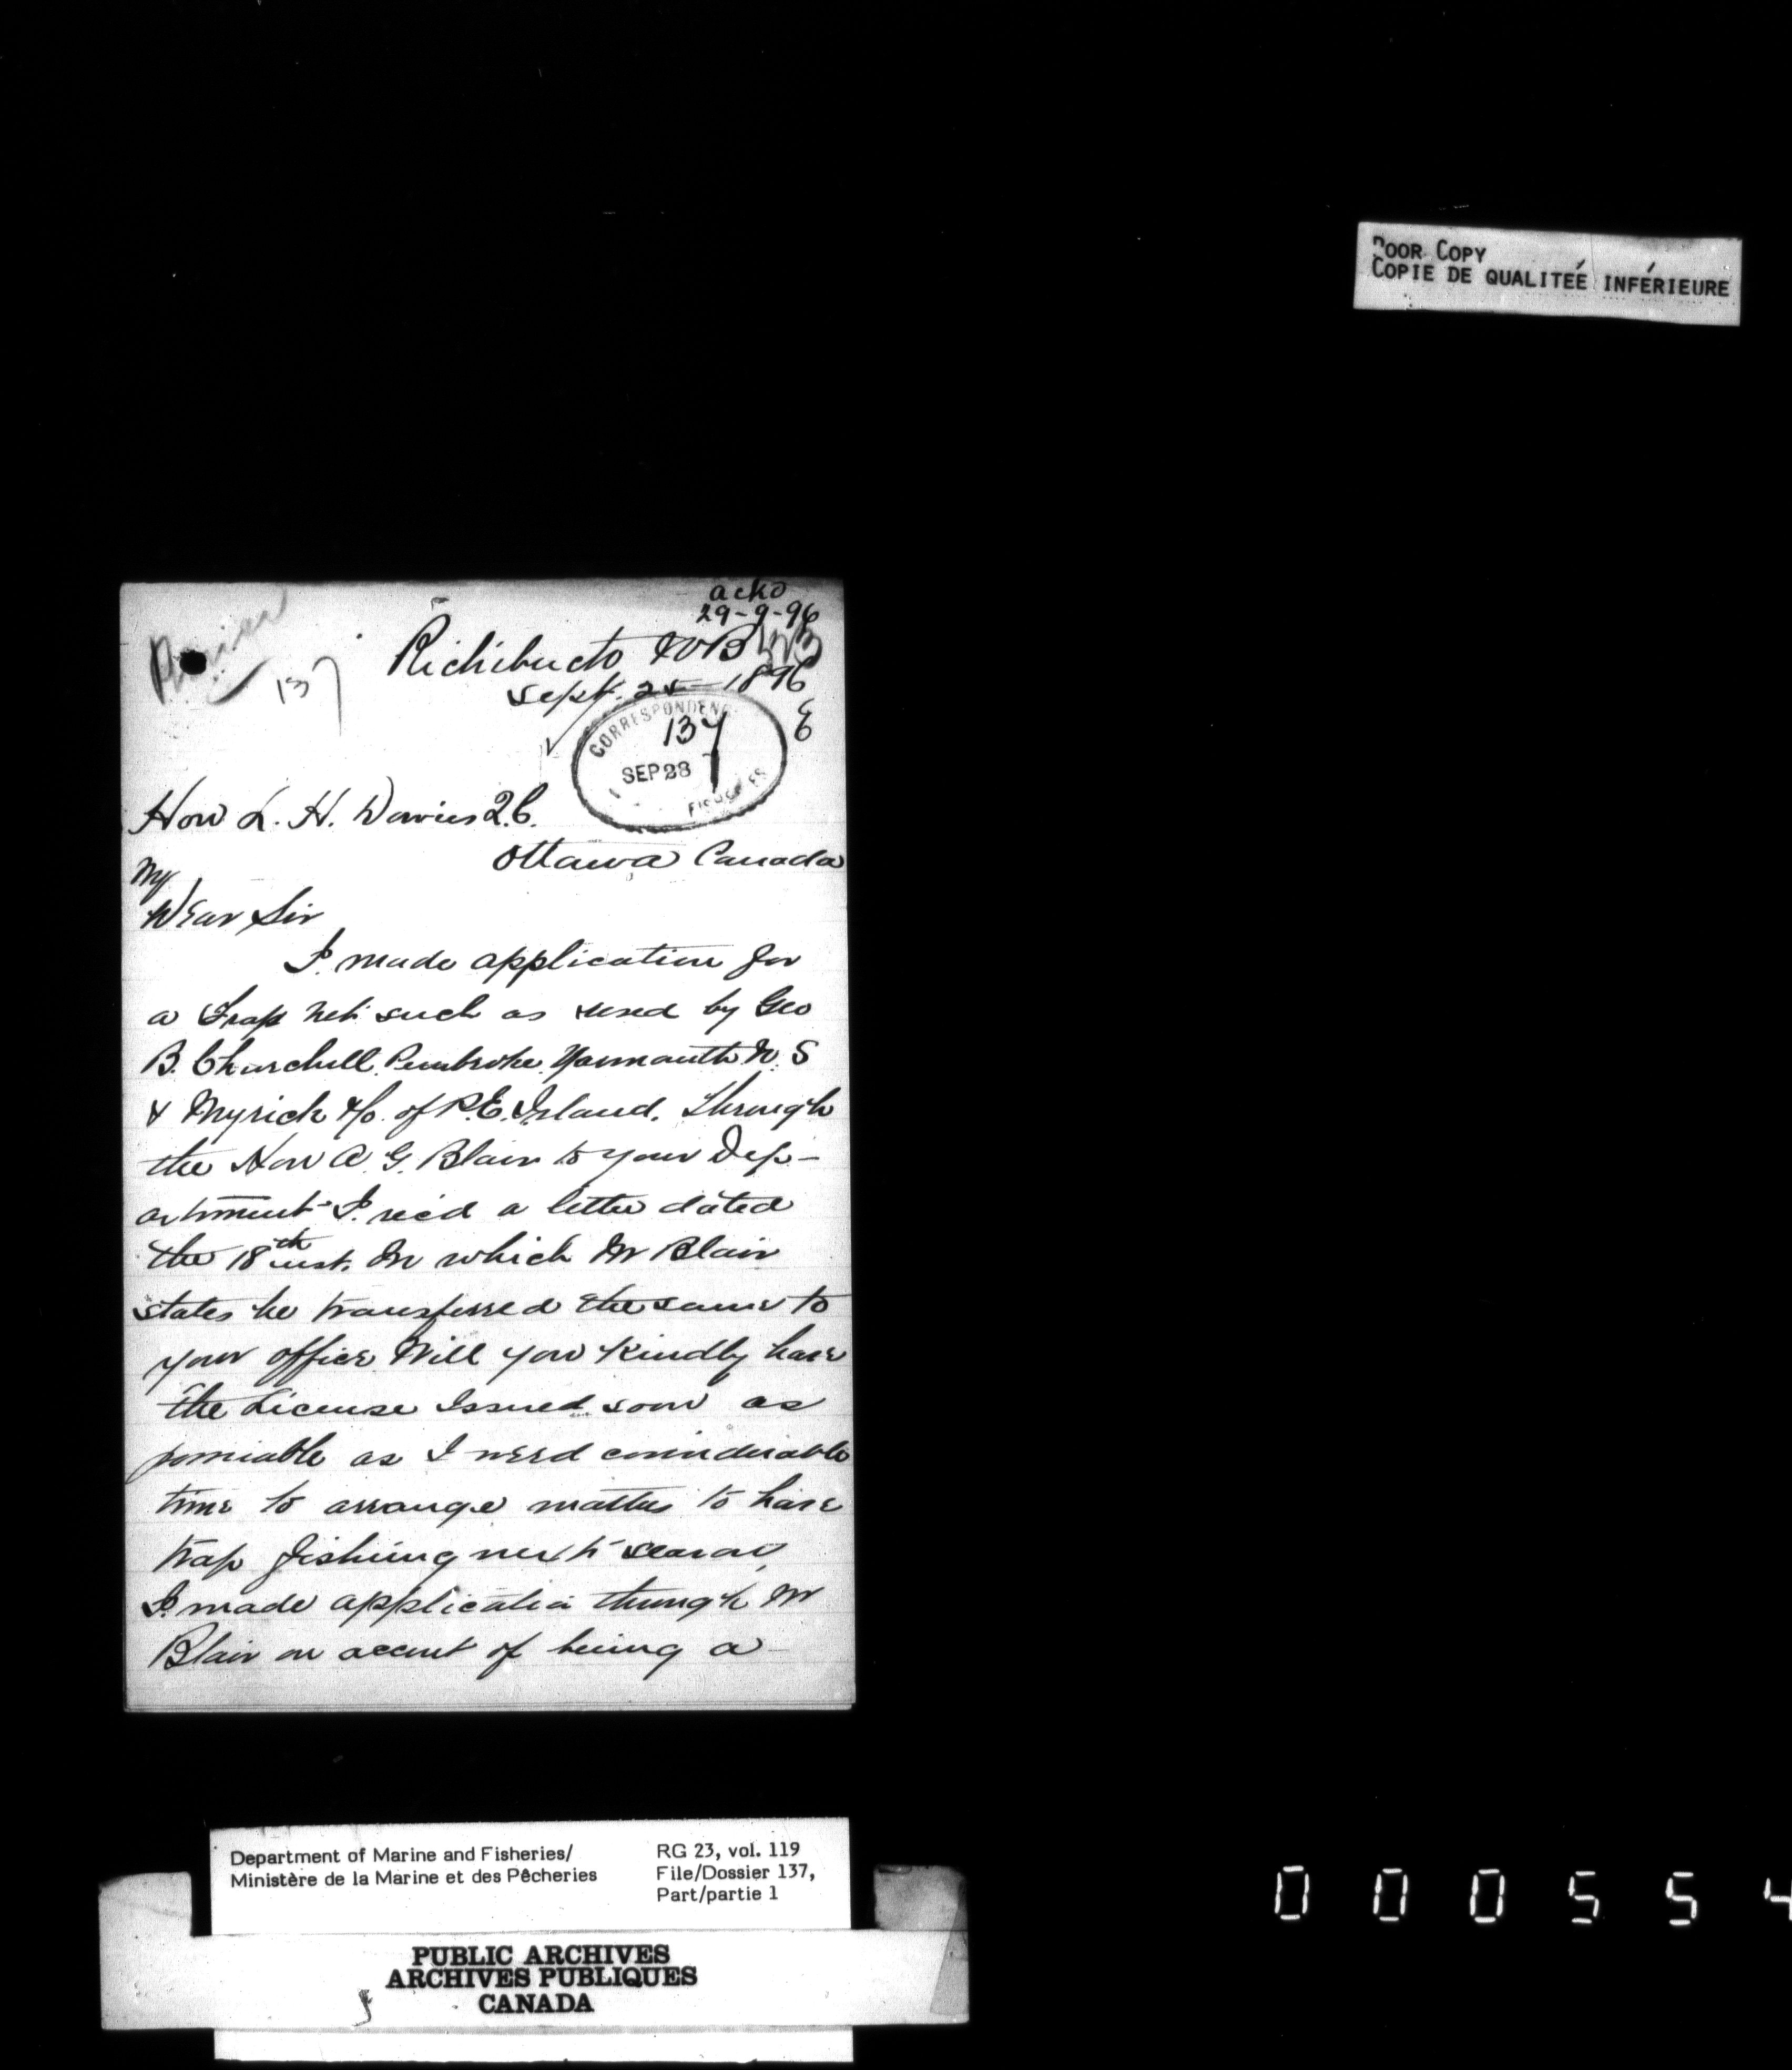 ackd
29-9-96
137
Richibucto NB
Sept. 25 1896
E
CORRESPONDENC
137
SEP 28
FISHERIES
Hon L. H. Davies Q.C.
Ottawa Canada
My
Dear Sir
I made application for
a Trap Net such as used by Geo
B. Churchill Pembroke Yarmouth N. S
& Myrick & Co. of P.E. Island, through
the Hon A. G. Blair to your Dep-
artment I rec'd a letter dated
the 18th inst. In which Mr Blair
states he transferred the same to
your office Will you kindly have
the License Issued soon as
possiable as I need considerable
time to arrange matters to have
trap fishing next season,
I made application through Mr
Blair on account of being a
POOR COPY
COPIE DE QUALITEÉ INFÉRIEURE
Department of Marine and Fisheries/
Ministère de la Marine et des Pêcheries
RG 23, vol. 119
File/Dossier 137,
Part/partie 1
PUBLIC ARCHIVES
ARCHIVES PUBLIQUES
CANADA
000554